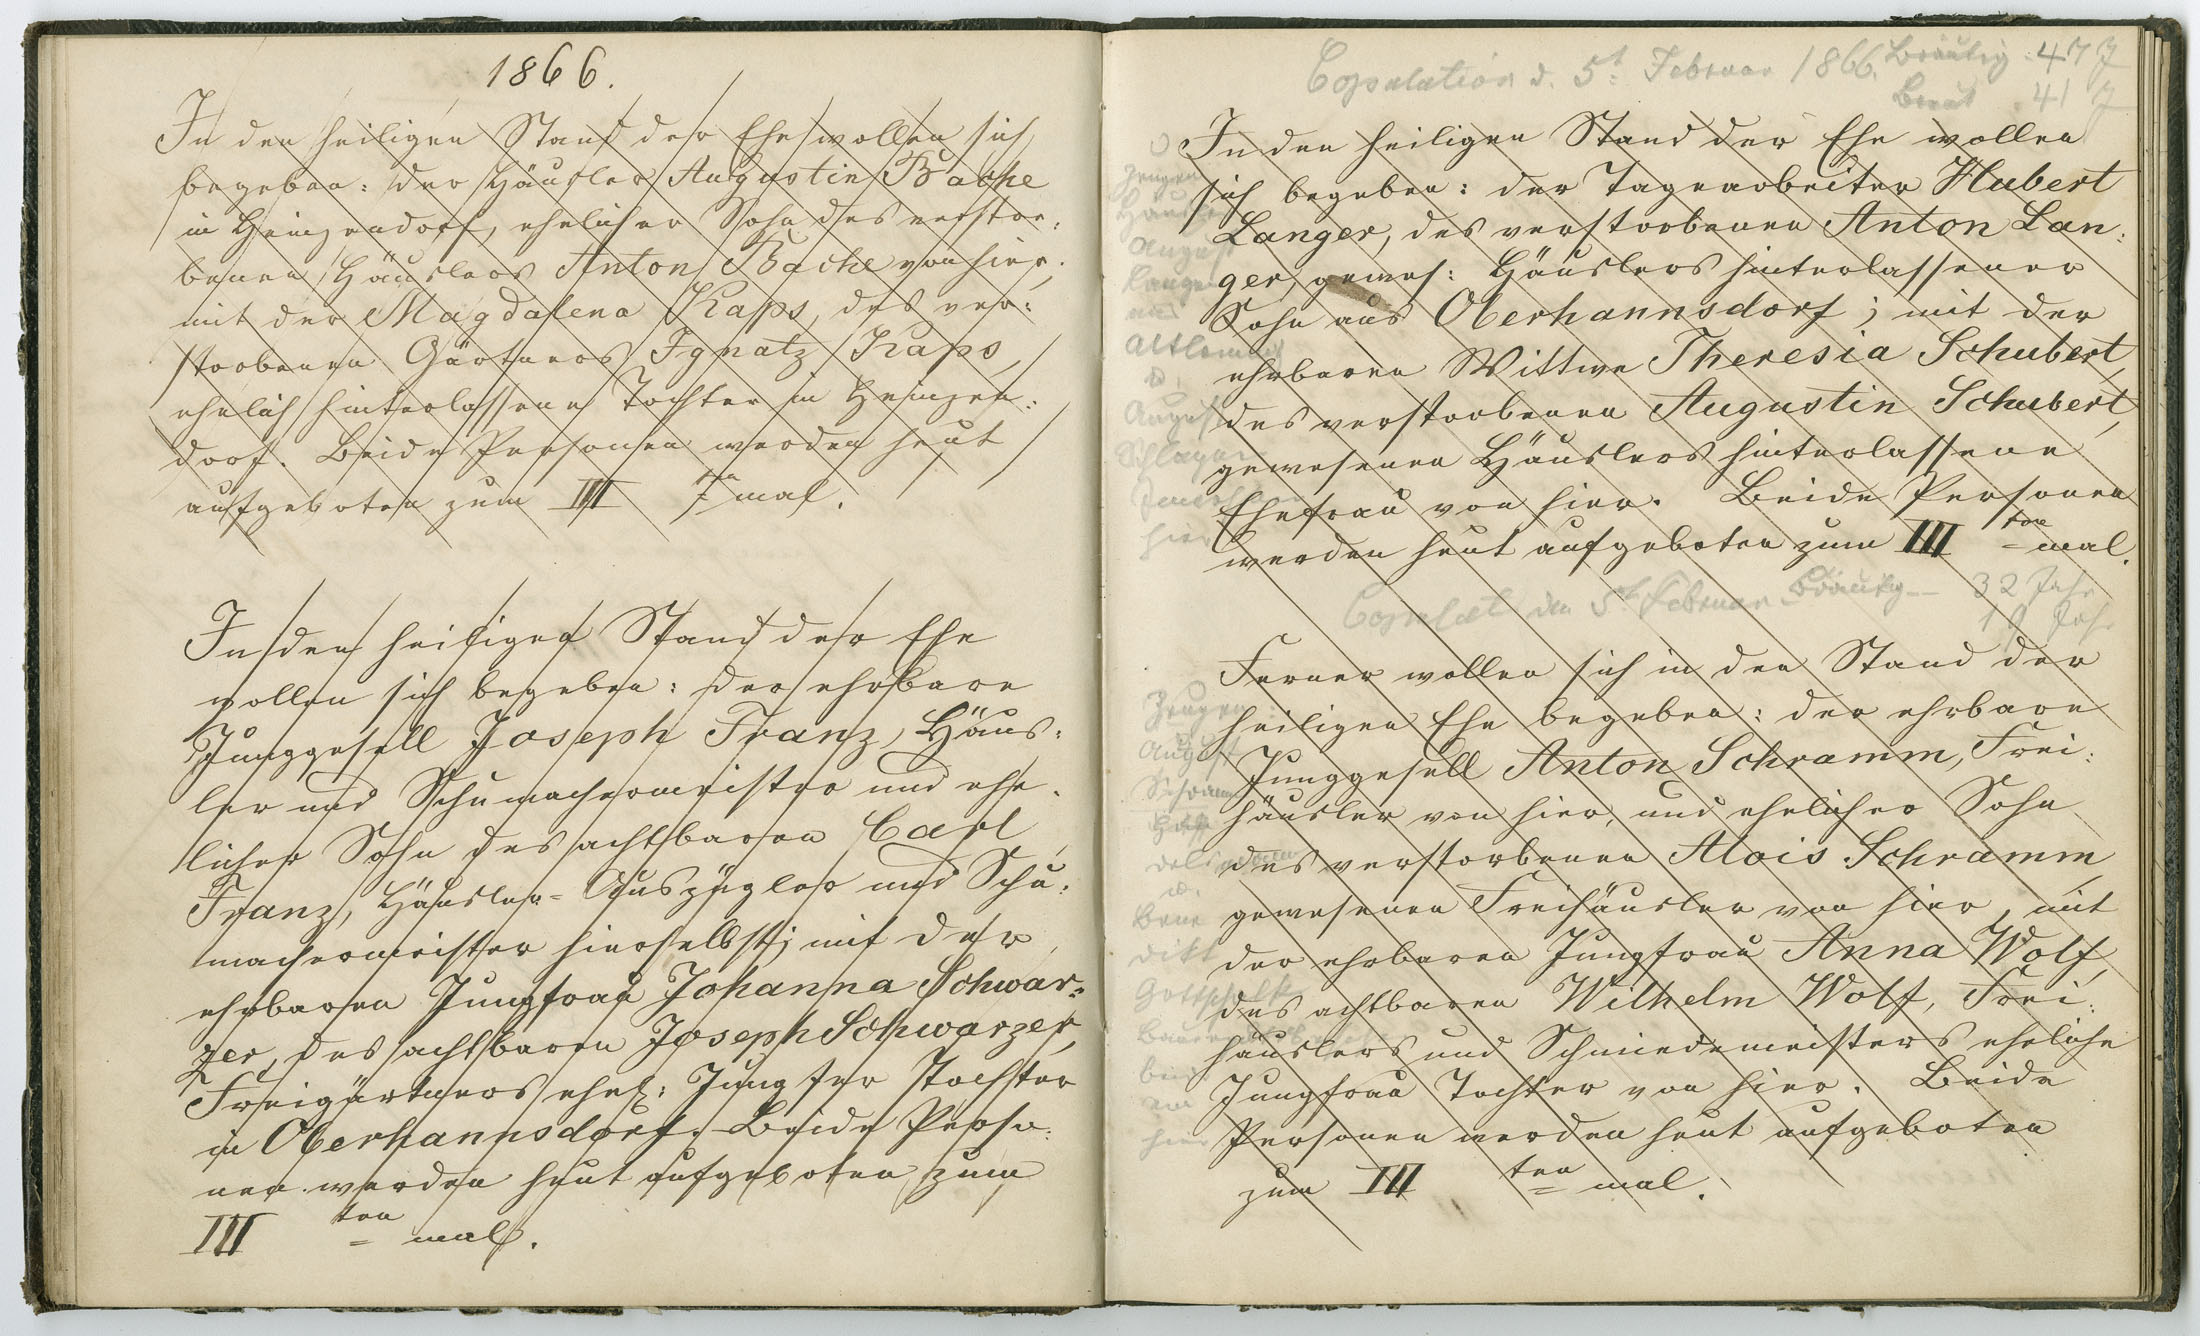 1866.
In den heiligen Stand der Ehe wollen sich
begeben: der Häusler Augustin Bache
in Heinzendorf, ehelicher Sohn des verstor:
benen Häuslers Anton Bache von hier;
mit der Magdalena Kaps, des ver:
storbenen Gärtners Ignatz Kaps,
ehelich hinterlassene Tochter in Heinzen:
dorf. Beide Personen werden heut
aufgeboten zum III ten mal.
In den heiligen Stand der Ehe
wollen sich begeben: der ehrbare
Junggesell Joseph Franz, Häus:
ler und Schumachermeister und ehe:
licher Sohn des achtbaren Carl
Franz, Häusler-Auszügler und Schu:
machermeister hierselbst; mit der
ehrbaren Jungfrau Johanna Schwar:
zer, des achtbaren Joseph Schwarzer,
Freigärtners ehel: Jungfer Tochter
in Oberhannsdorf. Beide Perso:
nen werden heut aufgeboten zum
III ten mal.
Copulation d. 5t. Februar 1866. Bräutig. 47 J
Braut 41 J
In den heiligen Stand der Ehe wollen
sich begeben: der Tagearbeiter Hubert
Langer, des verstorbenen Anton Lan:
ger, gewes: Häuslers hinterlassener
Sohn aus Oberhannsdorf; mit der
ehrbaren Wittwe Theresia Schubert,
des verstorbenen Augustin Schubert,
gewesenen Häuslers hinterlassene
Ehefrau von hier. Beide Personen
werden heut aufgeboten zum III ten mal.
Zeugen
Häusler
August
Langer
und
Altlomnitz
u.
August
Schlegel
hier
Copulat den 5t Februar Bräutig 32 Jahr
19 Jahr
Ferner wollen sich in den Stand der
heiligen Ehe begeben: der ehrbare
Junggesell Anton Schramm, Frei:
häusler von hier, und ehelicher Sohn
des verstorbenen Alois Schramm
gewesenen Freihäusler von hier, mit
der ehrbaren Jungfrau Anna Wolf,
des achtbaren Wilhelm Wolf, Frei:
häuslers und Schmiedemeisters eheliche
Jungfrau Tochter von hier. Beide
Personen werden heut aufgeboten
zum III ten mal.
Zeugen:
August
Schramm
u.
Bene
dikt
Gottschalk
Bauer
beide
von
hier